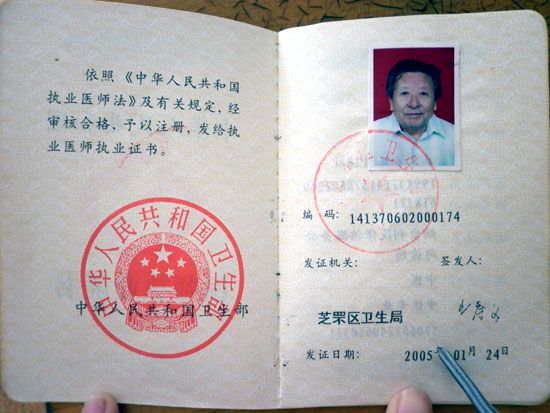 依照《中华人民共和国
执业医师法》及有关规定，经
审核合格，予以注册，发给执
业医师执业证书。
中华人民共和国卫生部
中华人民共和国卫生部
编码：141370602000174
发证机关：
签发人：
芝罘区卫生局
发证日期：2005年01月24日